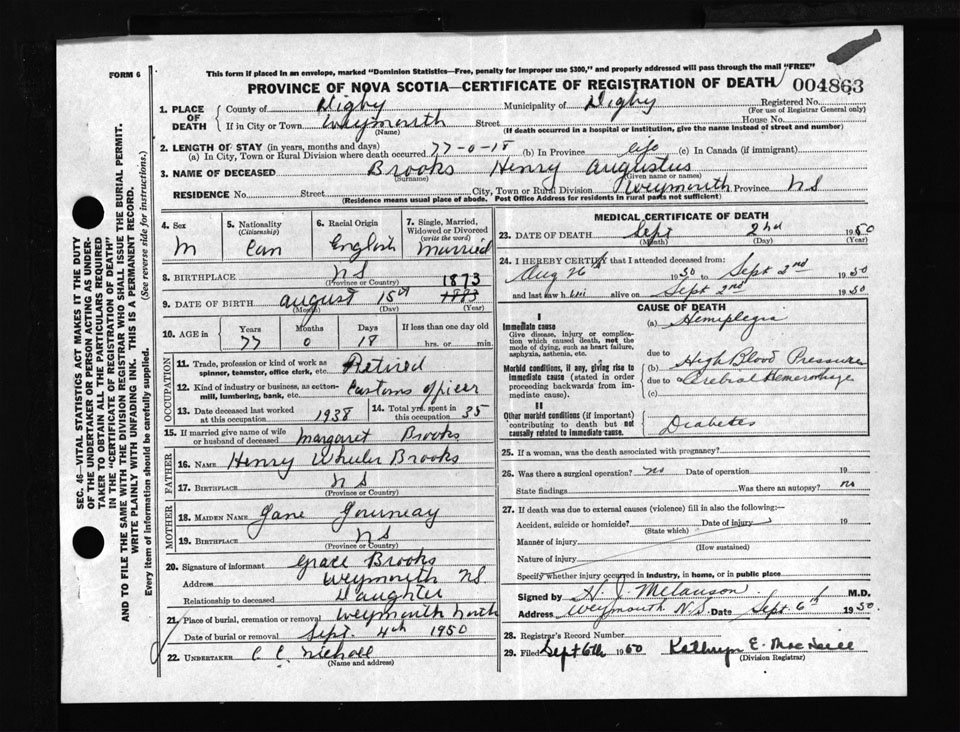 FORM 6
This form if placed in an envelope, marked "Dominion Statistics—Free, penalty for improper use $300," and properly addressed will pass through the mail "FREE"
PROVINCE OF NOVA SCOTIA—CERTIFICATE OF REGISTRATION OF DEATH
004863
1. PLACE OF DEATH
County of Digby Municipality of Digby Registered No.
(For use of Registrar General only)
If in City or Town Weymouth Street House No.
(Name) (If death occurred in a hospital or institution, give the name instead of street and number)
2. LENGTH OF STAY (in years, months and days)
(a) In City, Town or Rural Division where death occurred 77-0-18 (b) In Province life (c) In Canada (if immigrant)
3. NAME OF DECEASED Brooks Henry Augustus
(Surname) (Given name or names)
RESIDENCE No. Street City, Town or Rural Division Weymouth Province NS
(Residence means usual place of abode. Post Office Address for residents in rural parts not sufficient)
4. Sex M
5. Nationality (Citizenship) Can
6. Racial Origin English
7. Single, Married, Widowed or Divorced (write the word) Married
8. BIRTHPLACE NS
(Province or Country)
1873
9. DATE OF BIRTH August 15th 1883
(Month) (Day) (Year)
10. AGE in Years Months Days If less than one day old
77 0 18 hrs. or min.
OCCUPATION
11. Trade, profession or kind of work as spinner, teamster, office clerk, etc. Retired
12. Kind of industry or business, as cotton-mill, lumbering, bank, etc. Customs Officer
13. Date deceased last worked at this occupation 1938
14. Total yrs. spent in this occupation 35
15. If married give name of wife or husband of deceased Margaret Brooks
FATHER
16. NAME Henry Wheeler Brooks
17. BIRTHPLACE NS
(Province or Country)
MOTHER
18. MAIDEN NAME Jane
19. BIRTHPLACE NS
(Province or Country)
20. Signature of informant Grace Brooks
Address Weymouth NS
Relationship to deceased Daughter
21. Place of burial, cremation or removal Weymouth North
Date of burial or removal Sept. 4th 1950
22. UNDERTAKER C C Nichall
(Name and address)
MEDICAL CERTIFICATE OF DEATH
23. DATE OF DEATH Sept 2nd 1950
(Month) (Day) (Year)
24. I HEREBY CERTIFY that I attended deceased from:
Aug 26th 1950 to Sept 2nd 1950
and last saw him alive on Sept 2nd 1950
CAUSE OF DEATH
I
Immediate cause
Give disease, injury or complication which caused death, not the mode of dying, such as heart failure, asphyxia, asthenia, etc.
(a) Hemiplegia
due to
Morbid conditions, if any, giving rise to immediate cause (stated in order proceeding backwards from immediate cause).
(b) High Blood Pressure
due to Cerebral Hemorrhage
(c)
II
Other morbid conditions (if important) contributing to death but not causally related to immediate cause.
Diabetes
25. If a woman, was the death associated with pregnancy?
26. Was there a surgical operation? no Date of operation 19
State findings Was there an autopsy? no
27. If death was due to external causes (violence) fill in also the following:
Accident, suicide or homicide? Date of injury 19
(State which)
Manner of injury
(How sustained)
Nature of injury
Specify whether injury occurred in industry, in home, or in public place
Signed by H. J. Melanson M.D.
Address Weymouth N.S. Date Sept. 6th 1950.
28. Registrar's Record Number
29. Filed Sept 6th 1950 Kathryn E. MacNeill
(Division Registrar)
SEC. 46—VITAL STATISTICS ACT MAKES IT THE DUTY
OF THE UNDERTAKER OR PERSON ACTING AS UNDER-
TAKER TO OBTAIN ALL THE PARTICULARS REQUIRED
IN THE "CERTIFICATE OF REGISTRATION OF DEATH"
AND TO FILE THE SAME WITH THE DIVISION REGISTRAR WHO SHALL ISSUE THE BURIAL PERMIT.
WRITE PLAINLY WITH UNFADING INK. THIS IS A PERMANENT RECORD.
Every item of information should be carefully supplied. (See reverse side for instructions.)